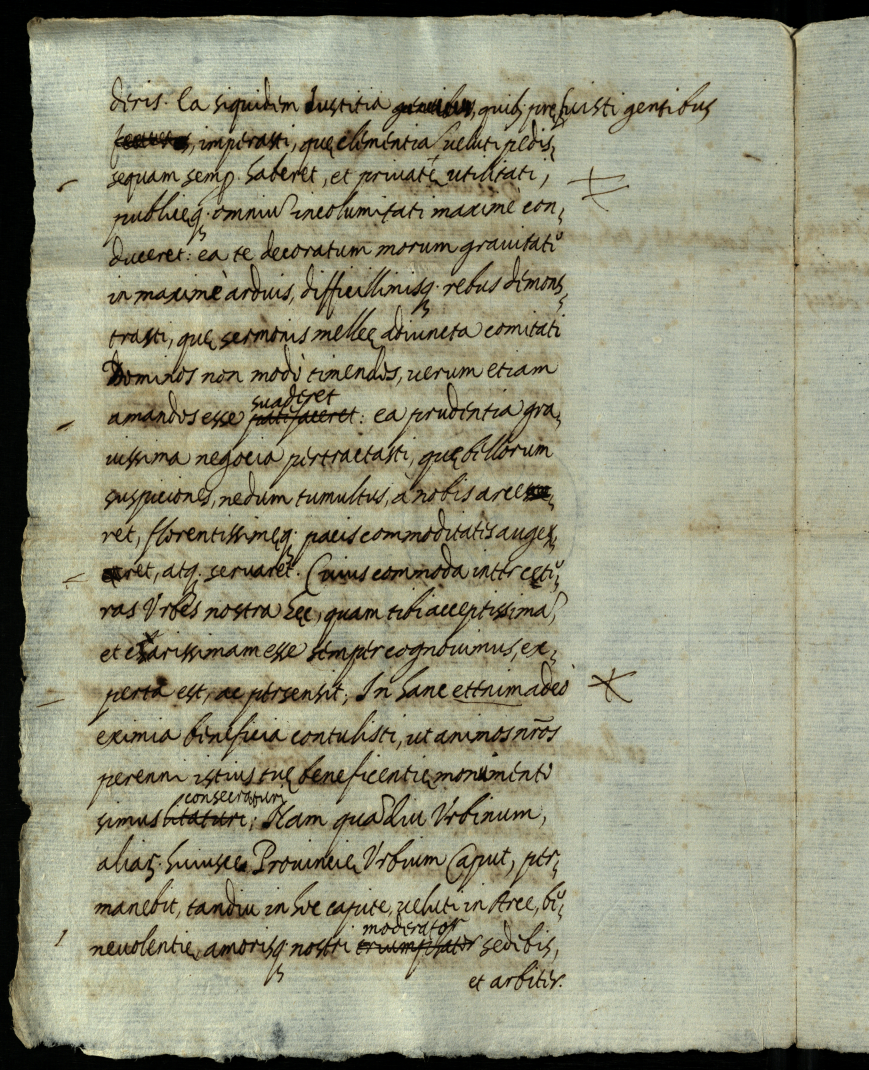 deris. Ea siquidem Iustitia quib; pręfuisti gentibus
, imperasti, quę clementiã ueluti pedis,
sequam semp. haberet, et priuatę utilitati,
publicęq; omniũ incolumitati maximè con,
duceret: ea te decoratum morum grauitate
in maximè arduis, difficillimisq; rebus demons,
trasti, quę sermonis mellęe adiuncta comitati
Dominos non modò timendos, uerum etiam
suaderet
amandos esse patefaceret: ea prudentia gra,
uissima negocia pertractasti, quę bellorum
suspiciones, nedum tumultus, à nobis arce,
ret, florentissimęq; pacis commoditates auge,
ret, atq; seruaret. Cuius commoda inter cętę,
ras Vrbes nostra hęc, quam tibi acceptissimã,
et charissimam esse semper cognouimus, ex,
perta est, ac persensit; In hanc etenim adeò
eximia beneficia contulisti, ut animos nr̃os
perenni istius tuę beneficentię monumento
consecraturi
simus litaturi; Nam quãdiu Vrbinum,
alias huiusce Prouincię Vrbium Caput, per,
manebit, tandiu in hoc capite, ueluti in Arce, be,
moderator
neuolentię, amorisq; nostri triumphator sedebis,
et arbiter.